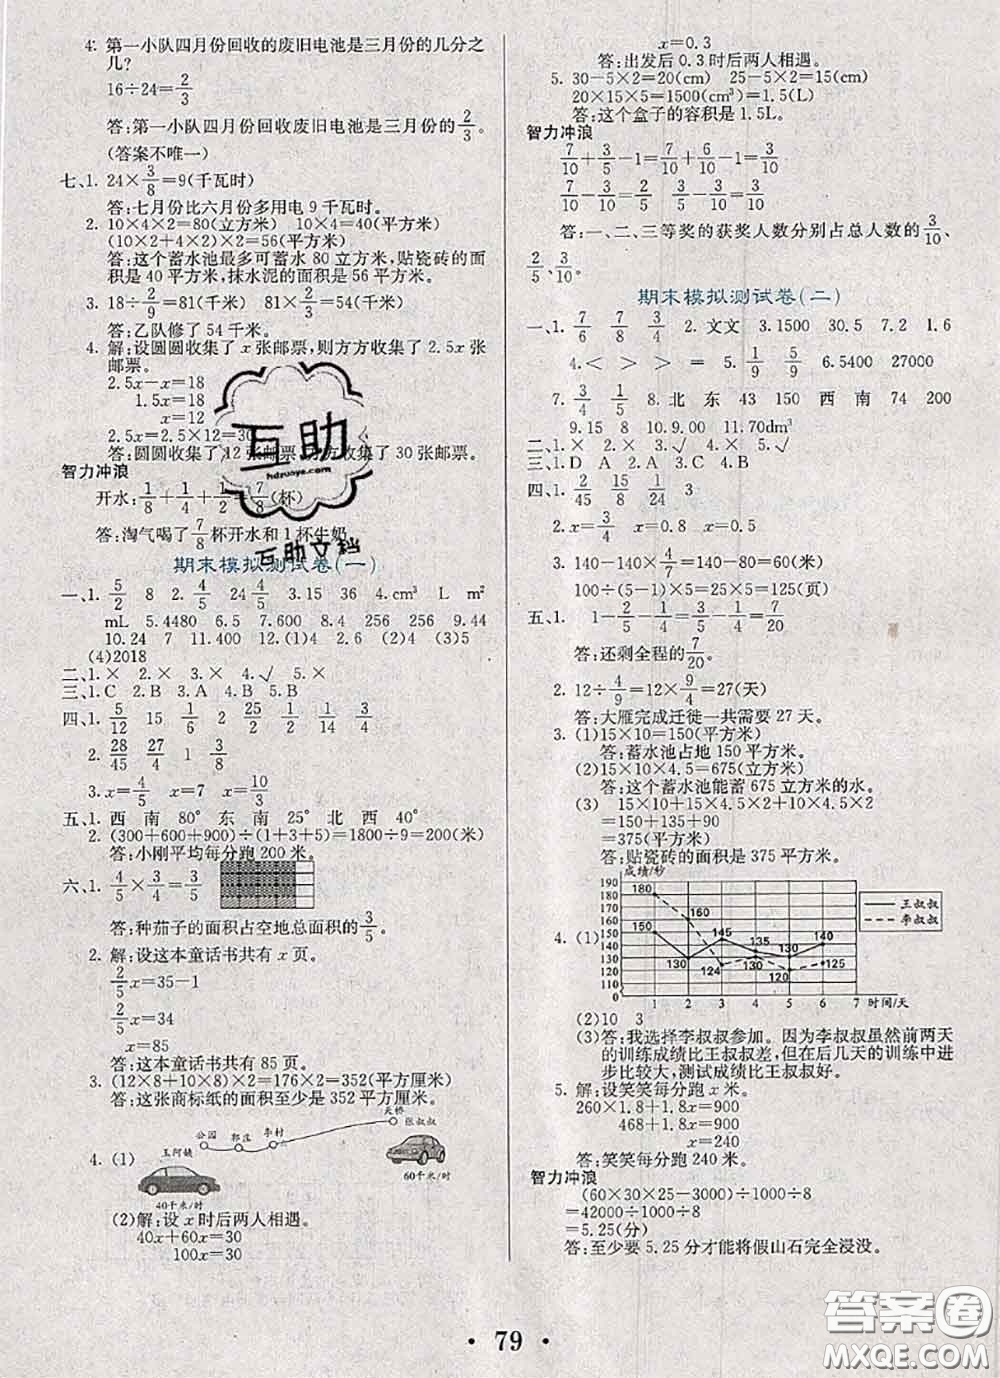 4. 第一小队四月份回收的废旧电池是三月份的几分之
几?
16÷24=2/3
答:第一小队四月份回收废旧电池是三月份的2/3。
(答案不唯一)
七、1. 24×3/8=9(千瓦时)
答:七月份比六月份多用电 9 千瓦时。
2. 10×4×2=80(立方米) 10×4=40(平方米)
(10×2+4×2)×2=56(平方米)
答:这个蓄水池最多可蓄水 80 立方米,贴瓷砖的面
积是 40 平方米,抹水泥的面积是 56 平方米。
3. 18÷2/9=81(千米) 81×2/3=54(千米)
答:乙队修了 54 千米。
4. 解:设圆圆收集了 x 张邮票,则方方收集了 2.5x 张
邮票。
2.5x-x=18
1.5x=18
x=12
2.5x=2.5×12=30
答:圆圆收集了 12 张邮票,方方收集了 30 张邮票。
智力冲浪
开水:1/8+1/4+1/2=7/8(杯)
答:淘气喝了7/8杯开水和 1 杯牛奶。
期末模拟测试卷(一)
一、1. 5/2 8 2. 4/5 24 4/5 3.15 36 4.cm³ L m²
mL 5.4480 6.5 7.600 8.4 256 256 9.64
10.24 7 11.400 12.(1)4 2.6 (2)4 (3)5
(4)2018
二、1.× 2.× 3.× 4.√ 5.×
三、1.C 2.B 3.A 4.B 5.B
四、1. 5/12 15 1/6 2 25/2 1/2 1/14 3/4
2. 28/45 27/4 1 3/8
3. x=4/5 x=7 x=10/9
五、1. 西 南 80° 东 南 25° 北 西 40°
2. (300+600+900)÷(1+3+5)=1800÷9=200(米)
答:小刚平均每分跑 200 米。
六、1. 4/5×3/4=3/5
答:种茄子的面积占空地总面积的3/5。
2. 解:设这本童话书共有 x 页。
2/5x=35-1
2/5x=34
x=85
答:这本童话书共有 85 页。
3. (12×8+10×8)×2=176×2=352(平方厘米)
答:这张商标纸的面积至少是 352 平方厘米。
4. (1)
王阿姨 公园 郭庄 李村 天桥 张叔叔
40千米/时 60千米/时
(2)解:设 x 时后两人相遇。
40x+60x=30
100x=30
x=0.3
答:出发后 0.3 时后两人相遇。
5. 30-5×2=20(cm) 25-5×2=15(cm)
20×15×5=1500(cm³)=1.5(L)
答:这个盒子的容积是 1.5L。
智力冲浪
7/10+3/5-1=7/10+6/10-1=3/10
7/10-3/10=2/5 3/5-3/10=3/10
答:一、二、三等奖的获奖人数分别占总人数的3/10、
2/5、3/10。
期末模拟测试卷(二)
一、1. 7/6 7/8 3/4 2. 文文 3.1500 30.5 7.2 1.6
4.< > > = 5. 1/9 5/9 6.5400 27000
7. 3/4 1/5 8. 北 东 43 150 西 南 74 200
9.15 8 10.9.00 11.70dm³
二、1.× 2.× 3.√ 4.× 5.√
三、1.D A 2.A 3.C 4.B
四、1. 2/45 15/8 1/24 3
2. x=3/4 x=0.8 x=0.4
3. 140-140×4/7=140-80=60(米)
100÷(5-1)×5=25×5=125(页)
五、1. 1-2/5-1/4=3/5-1/4=7/20
答:还剩全程的7/20。
2. 12÷4/9=12×9/4=27(天)
答:大雁完成迁徙一共需要 27 天。
3. (1)15×10=150(平方米)
答:蓄水池占地 150 平方米。
(2)15×10×4.5=675(立方米)
答:这个蓄水池能蓄 675 立方米的水。
(3) 15×10+15×4.5×2+10×4.5×2
=150+135+90
=375(平方米)
答:贴瓷砖的面积是 375 平方米。
4. (1)
成绩/秒
190
180
170
160
150
140
130
120
110
100
0
180 160 150 130 145 124 135 130 130 120 140 125
王叔叔
李叔叔
1 2 3 4 5 6 7 时间/天
(2)10 3
(3)答:我选择李叔叔参加。因为李叔叔虽然前两天
的训练成绩比王叔叔差,但在后几天的训练中进
步比较大,测试成绩比王叔叔好。
5. 解:设笑笑每分跑 x 米。
260×1.8+1.8x=900
468+1.8x=900
x=240
答:笑笑每分跑 240 米。
智力冲浪
(60×30×25-3000)÷1000÷8
=42000÷1000÷8
=5.25(分)
答:至少要 5.25 分才能将假山石完全浸没。
互助
hdzuoye.com
互助文档
· 79 ·
答案圈
MXQE.COM